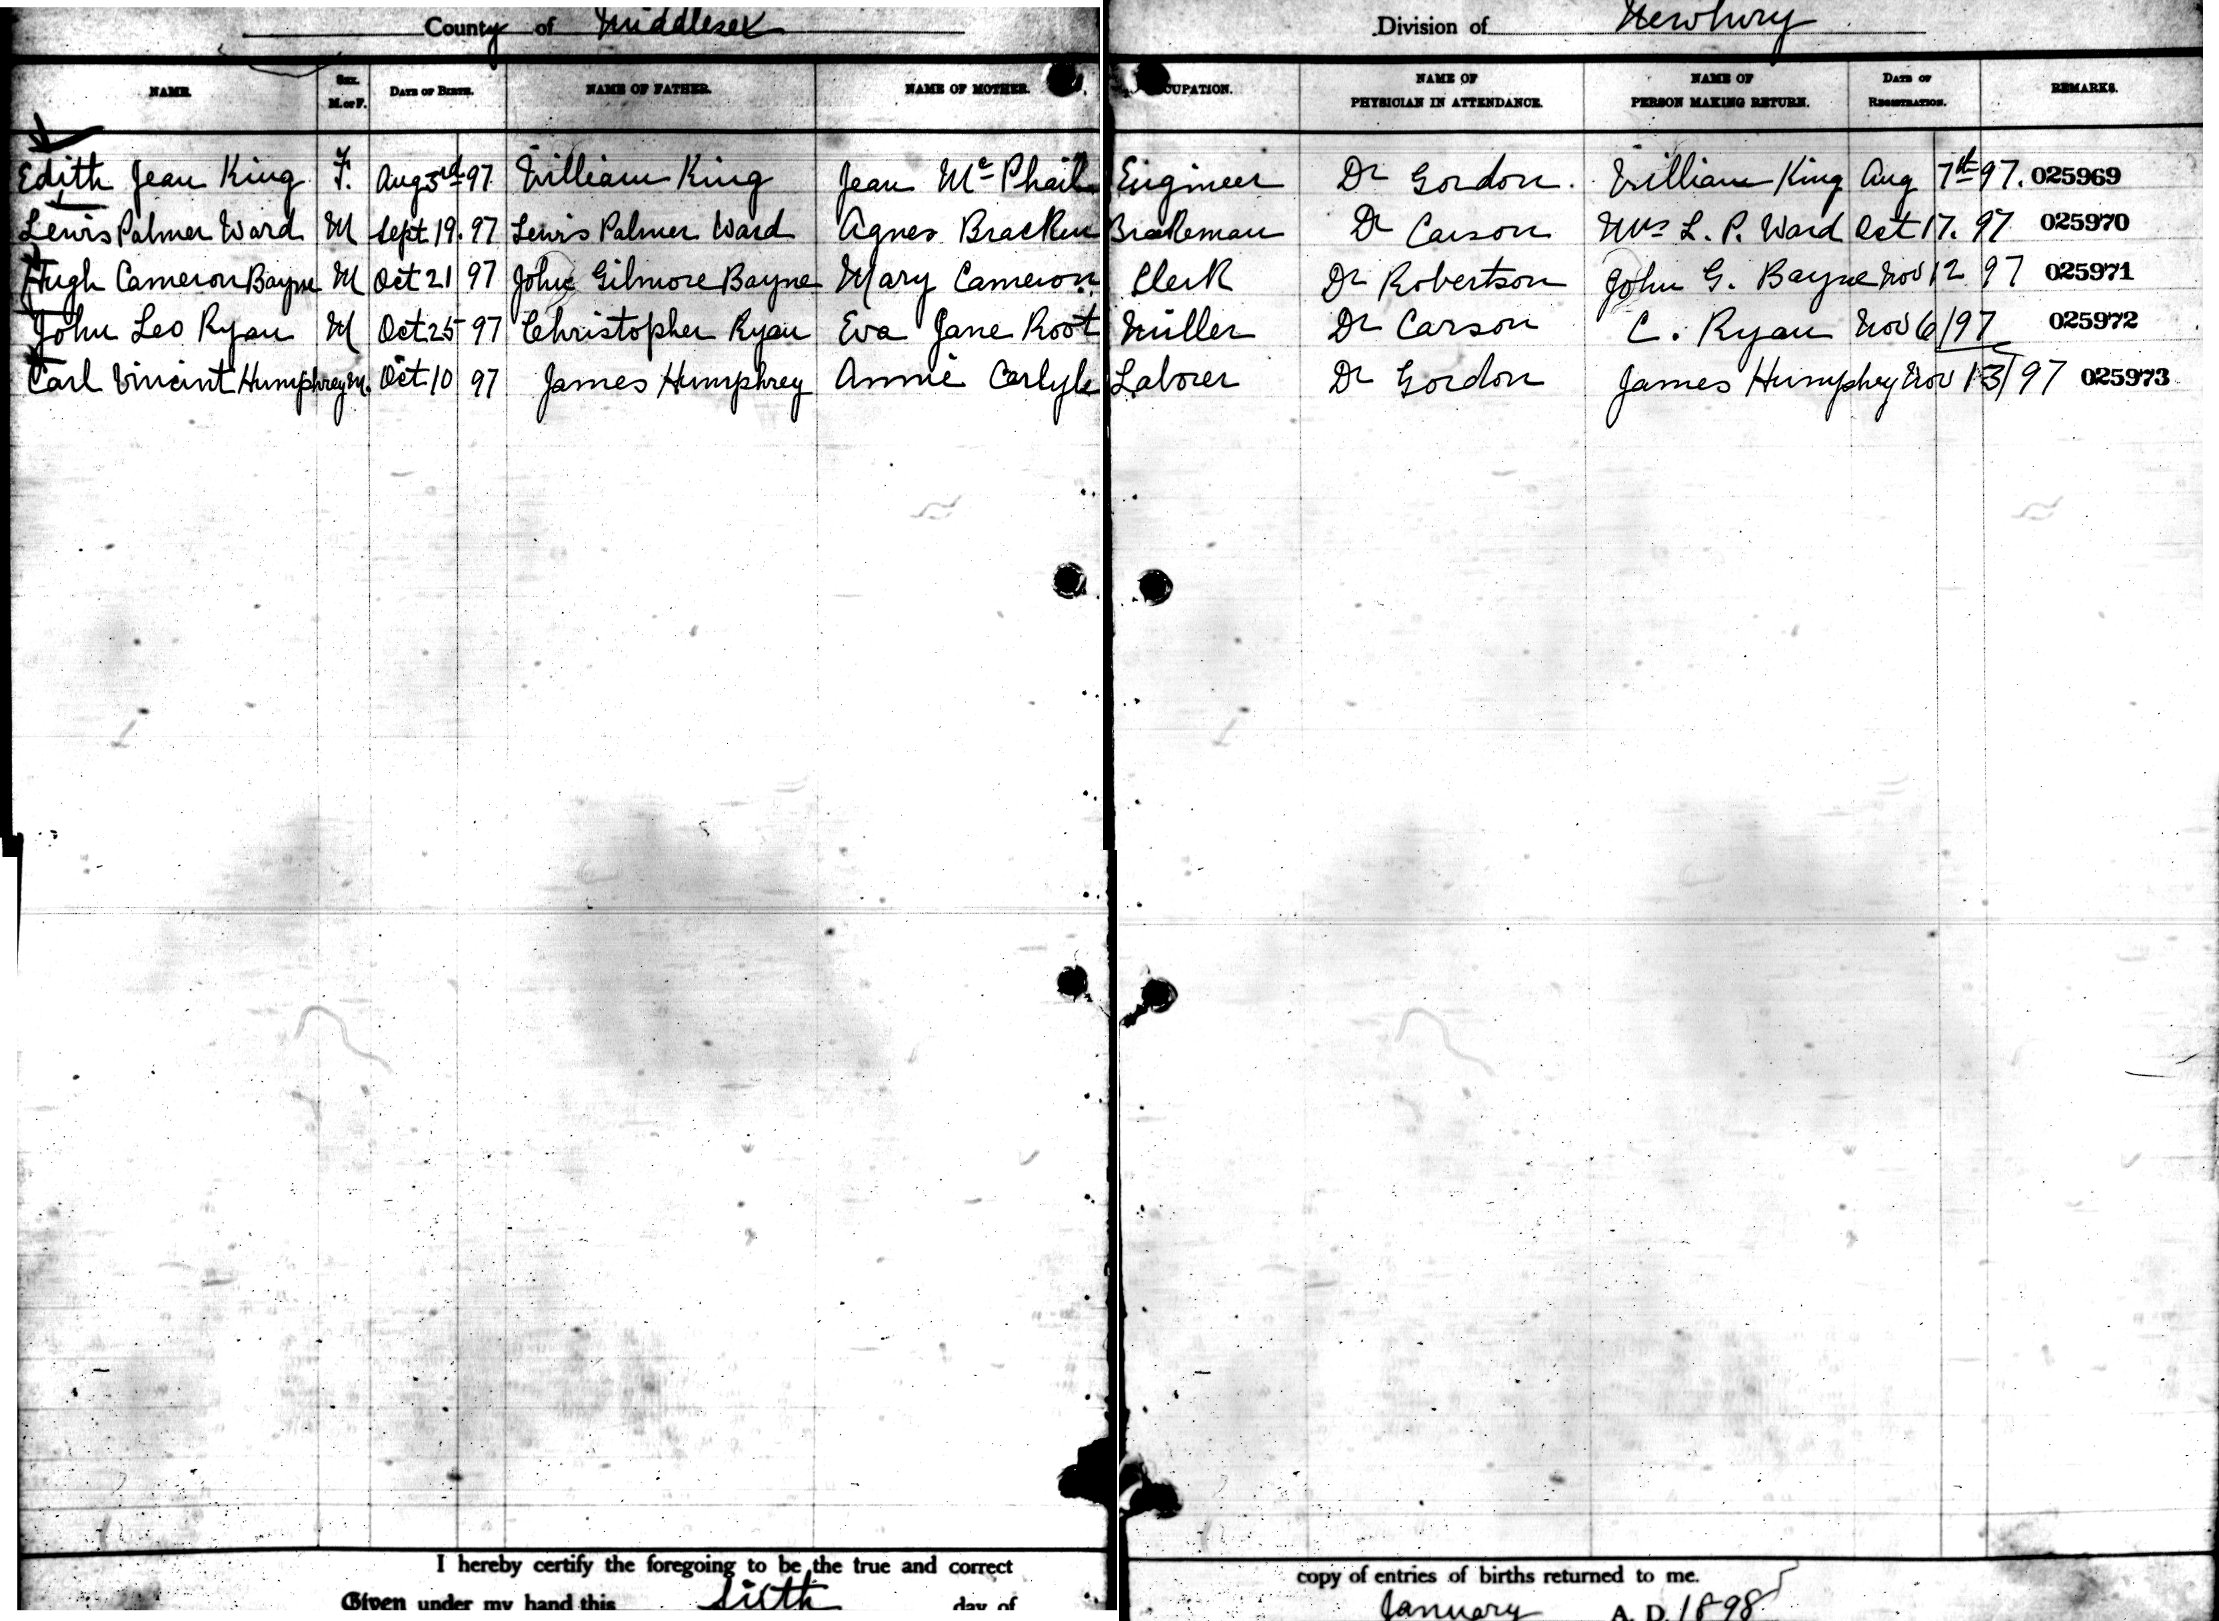 County of Middlesex Division of Newbury
NAME. SEX. M. or F. DATE OF BIRTH. NAME OF FATHER. NAME OF MOTHER. CUPATION. NAME OF PHYSICIAN IN ATTENDANCE. NAME OF PERSON MAKING RETURN. DATE OF REGISTRATION. REMARKS.
Edith Jean King F. Aug 3rd 97 William King Jean Mc Phail Engineer Dr Gordon. William King Aug 7th 97. 025969
Lewis Palmer Ward M Sept 19. 97 Lewis Palmer Ward Agnes Bracken Brakeman Dr Carson Mrs L. P. Ward Oct 17. 97 025970
Hugh Cameron Bayne M Oct 21 97 John Gilmore Bayne Mary Cameron Clerk Dr Robertson John G. Bayne Nov 12 97 025971
John Leo Ryan M Oct 25 97 Christopher Ryan Eva Jane Root Miller Dr Carson C. Ryan Nov 6/97 025972
Carl Vincent Humphrey M. Oct 10 97 James Humphrey Annie Carlyle Laborer Dr Gordon James Humphrey Nov 13/97 025973
I hereby certify the foregoing to be the true and correct copy of entries of births returned to me.
Given under my hand this sixth day of January A. D. 1898